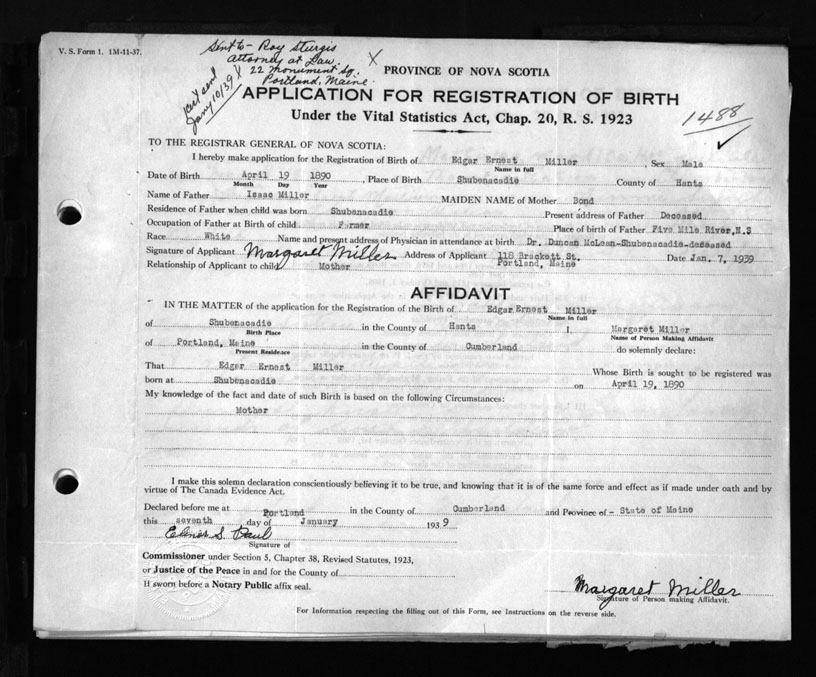 V. S. Form 1. 1M-11-37.
Sent to - Roy Sturgis
Attorney at Law.
22 Monument Sq.
Portland, Maine.
X
X
Cert sent
Jany 10/39
PROVINCE OF NOVA SCOTIA
APPLICATION FOR REGISTRATION OF BIRTH
Under the Vital Statistics Act, Chap. 20, R. S. 1923
1488
TO THE REGISTRAR GENERAL OF NOVA SCOTIA:
I hereby make application for the Registration of Birth of Edgar Ernest Miller, Sex Male
Name in full
Date of Birth April 19 1890, Place of Birth Shubenacadie County of Hants
Month Day Year
Name of Father Isaac Miller MAIDEN NAME of Mother Bond
Residence of Father when child was born Shubenacadie Present address of Father Deceased
Occupation of Father at Birth of child Farmer Place of birth of Father Five Mile River, N.S
Race White Name and present address of Physician in attendance at birth Dr. Duncan McLean-Shubenacadie-deceased
Signature of Applicant Margaret Miller Address of Applicant 118 Brackett St. Portland, Maine Date Jan. 7, 1939
Relationship of Applicant to child Mother
AFFIDAVIT
IN THE MATTER of the application for the Registration of the Birth of Edgar Ernest Miller
Name in full
of Shubenacadie in the County of Hants I, Margaret Miller
Birth Place Name of Person Making Affidavit
of Portland, Maine in the County of Cumberland do solemnly declare:
Present Residence
That Edgar Ernest Miller Whose Birth is sought to be registered was
born at Shubenacadie on April 19, 1890
My knowledge of the fact and date of such Birth is based on the following Circumstances:
Mother
I make this solemn declaration conscientiously believing it to be true, and knowing that it is of the same force and effect as if made under oath and by
virtue of The Canada Evidence Act.
Declared before me at Portland in the County of Cumberland and Province of - State of Maine
this seventh day of January 1939
Elmer S. Paul
Signature of
Commissioner under Section 5, Chapter 38, Revised Statutes, 1923,
or Justice of the Peace in and for the County of
If sworn before a Notary Public affix seal.
Margaret Miller
Signature of Person making Affidavit.
For Information respecting the filling out of this Form, see Instructions on the reverse side.